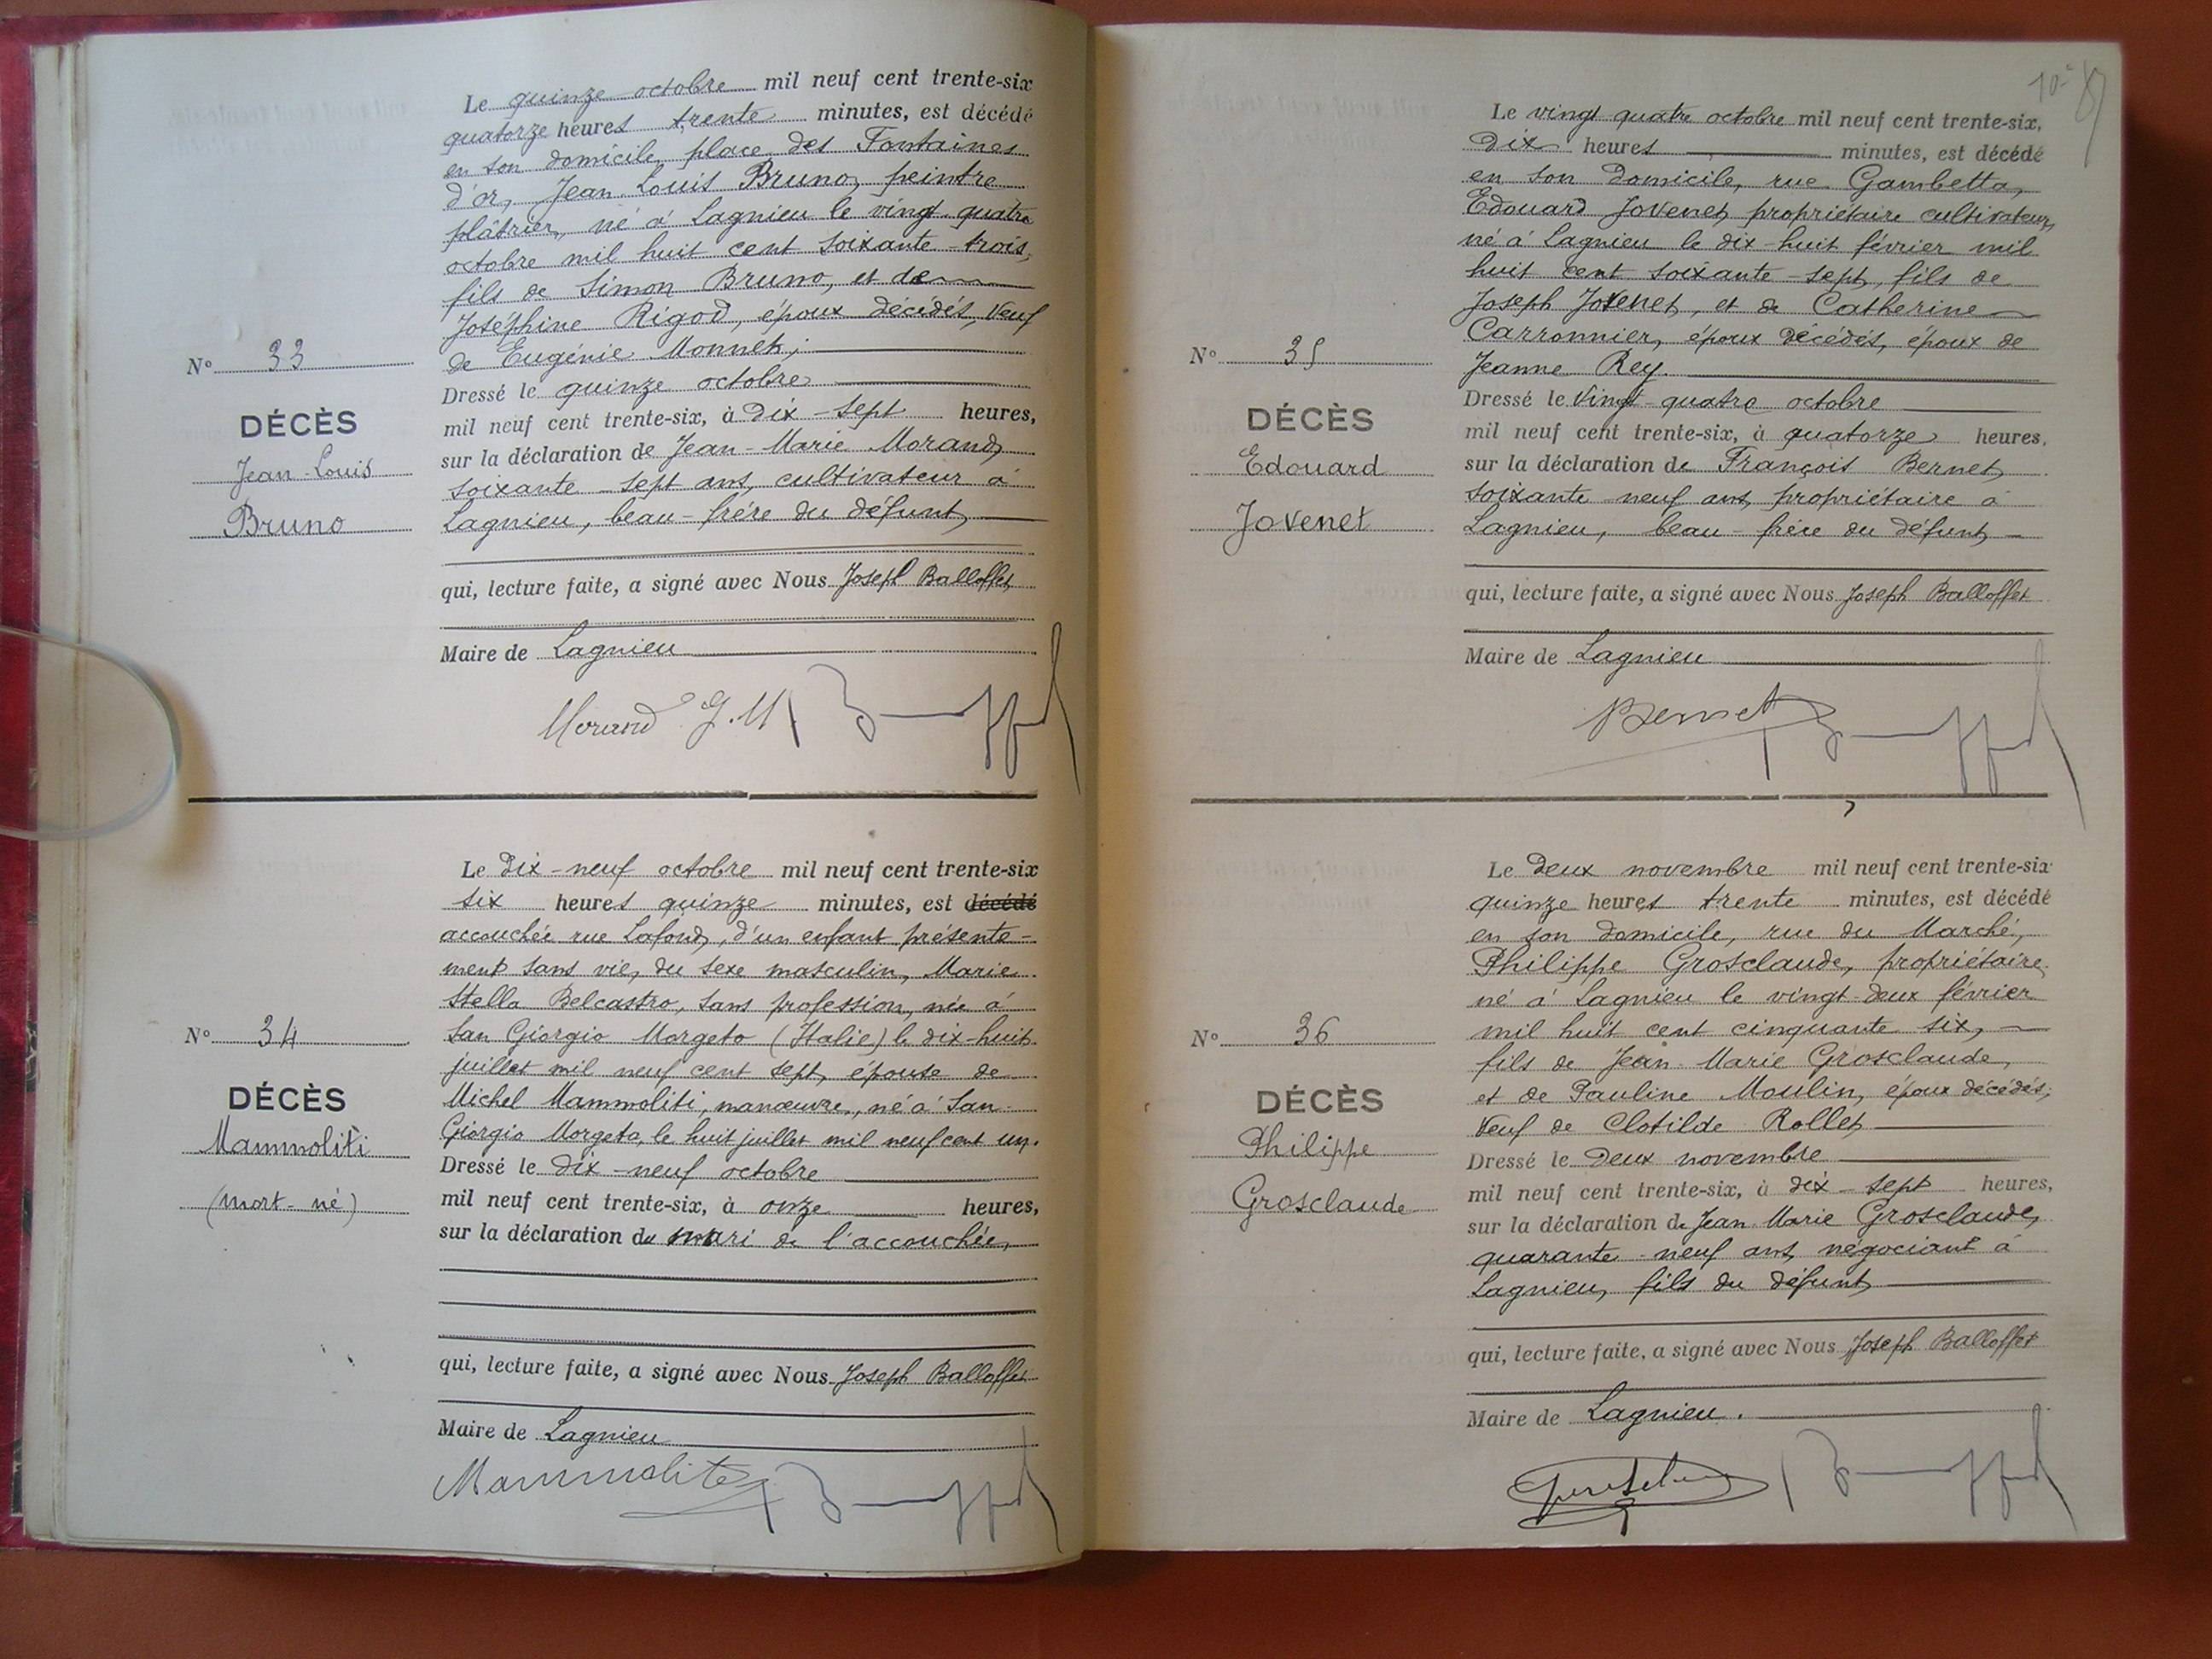 Le quinze octobre mil neuf cent trente-six
quatorze heures trente minutes, est décédé
en son domicile, place des Fontaines
d'or, Jean Louis Bruno, peintre
plâtrier, né à Lagnieu le vingt-quatre
octobre mil huit cent soixante-trois,
fils de Simon Bruno, et de
Joséphine Rigod, époux décédés, veuf
de Eugénie Monnet;
N° 33
DÉCÈS
Jean-Louis
Bruno
Dressé le quinze octobre
mil neuf cent trente-six, à dix-sept heures,
sur la déclaration de Jean-Marie Morand,
soixante-sept ans, cultivateur à
Lagnieu, beau-frère du défunt,
qui, lecture faite, a signé avec Nous Joseph Balloffet
Maire de Lagnieu
Morand J.M
Le dix-neuf octobre mil neuf cent trente-six
six heures quinze minutes, est décédé
accouchée rue Lafond, d'un enfant présente-
ment sans vie, du sexe masculin, Marie
Stella Belcastro, sans profession, née à
San Giorgio Morgeto (Italie) le dix-huit
juillet mil neuf cent sept, épouse de
Michel Mammoliti, manœuvre, né à San
Giorgio Morgeto, le huit juillet mil neuf cent un.
N° 34
DÉCÈS
Mammoliti
(mort-né)
Dressé le dix-neuf octobre
mil neuf cent trente-six, à onze heures,
sur la déclaration du mari de l'accouchée,
qui, lecture faite, a signé avec Nous Joseph Balloffet
Maire de Lagnieu
Mammoliti
10
Le vingt quatre octobre mil neuf cent trente-six,
Dix heures minutes, est décédé
en son domicile, rue Gambetta,
Edouard Jovenet, propriétaire cultivateur,
né à Lagnieu le dix-huit février mil
huit cent soixante-sept, fils de
Joseph Jovenet, et de Catherine
Carronnier, époux décédés, époux de
Jeanne Rey.
N° 35
DÉCÈS
Edouard
Jovenet
Dressé le vingt-quatre octobre
mil neuf cent trente-six, à quatorze heures,
sur la déclaration de François Bernet,
soixante-neuf ans, propriétaire à
Lagnieu, beau-frère du défunt,
qui, lecture faite, a signé avec Nous Joseph Balloffet
Maire de Lagnieu
Bernet
Le deux novembre mil neuf cent trente-six
quinze heures trente minutes, est décédé
en son domicile, rue du Marché,
Philippe Grosclaude, propriétaire,
né à Lagnieu le vingt-deux février
mil huit cent cinquante six,
fils de Jean-Marie Grosclaude,
et de Pauline Moulin, époux décédés;
Veuf de Clotilde Rollet
N° 36
DÉCÈS
Philippe
Grosclaude
Dressé le deux novembre
mil neuf cent trente-six, à dix-sept heures,
sur la déclaration de Jean Marie Grosclaude,
quarante-neuf ans, négociant à
Lagnieu, fils du défunt,
qui, lecture faite, a signé avec Nous Joseph Balloffet
Maire de Lagnieu.